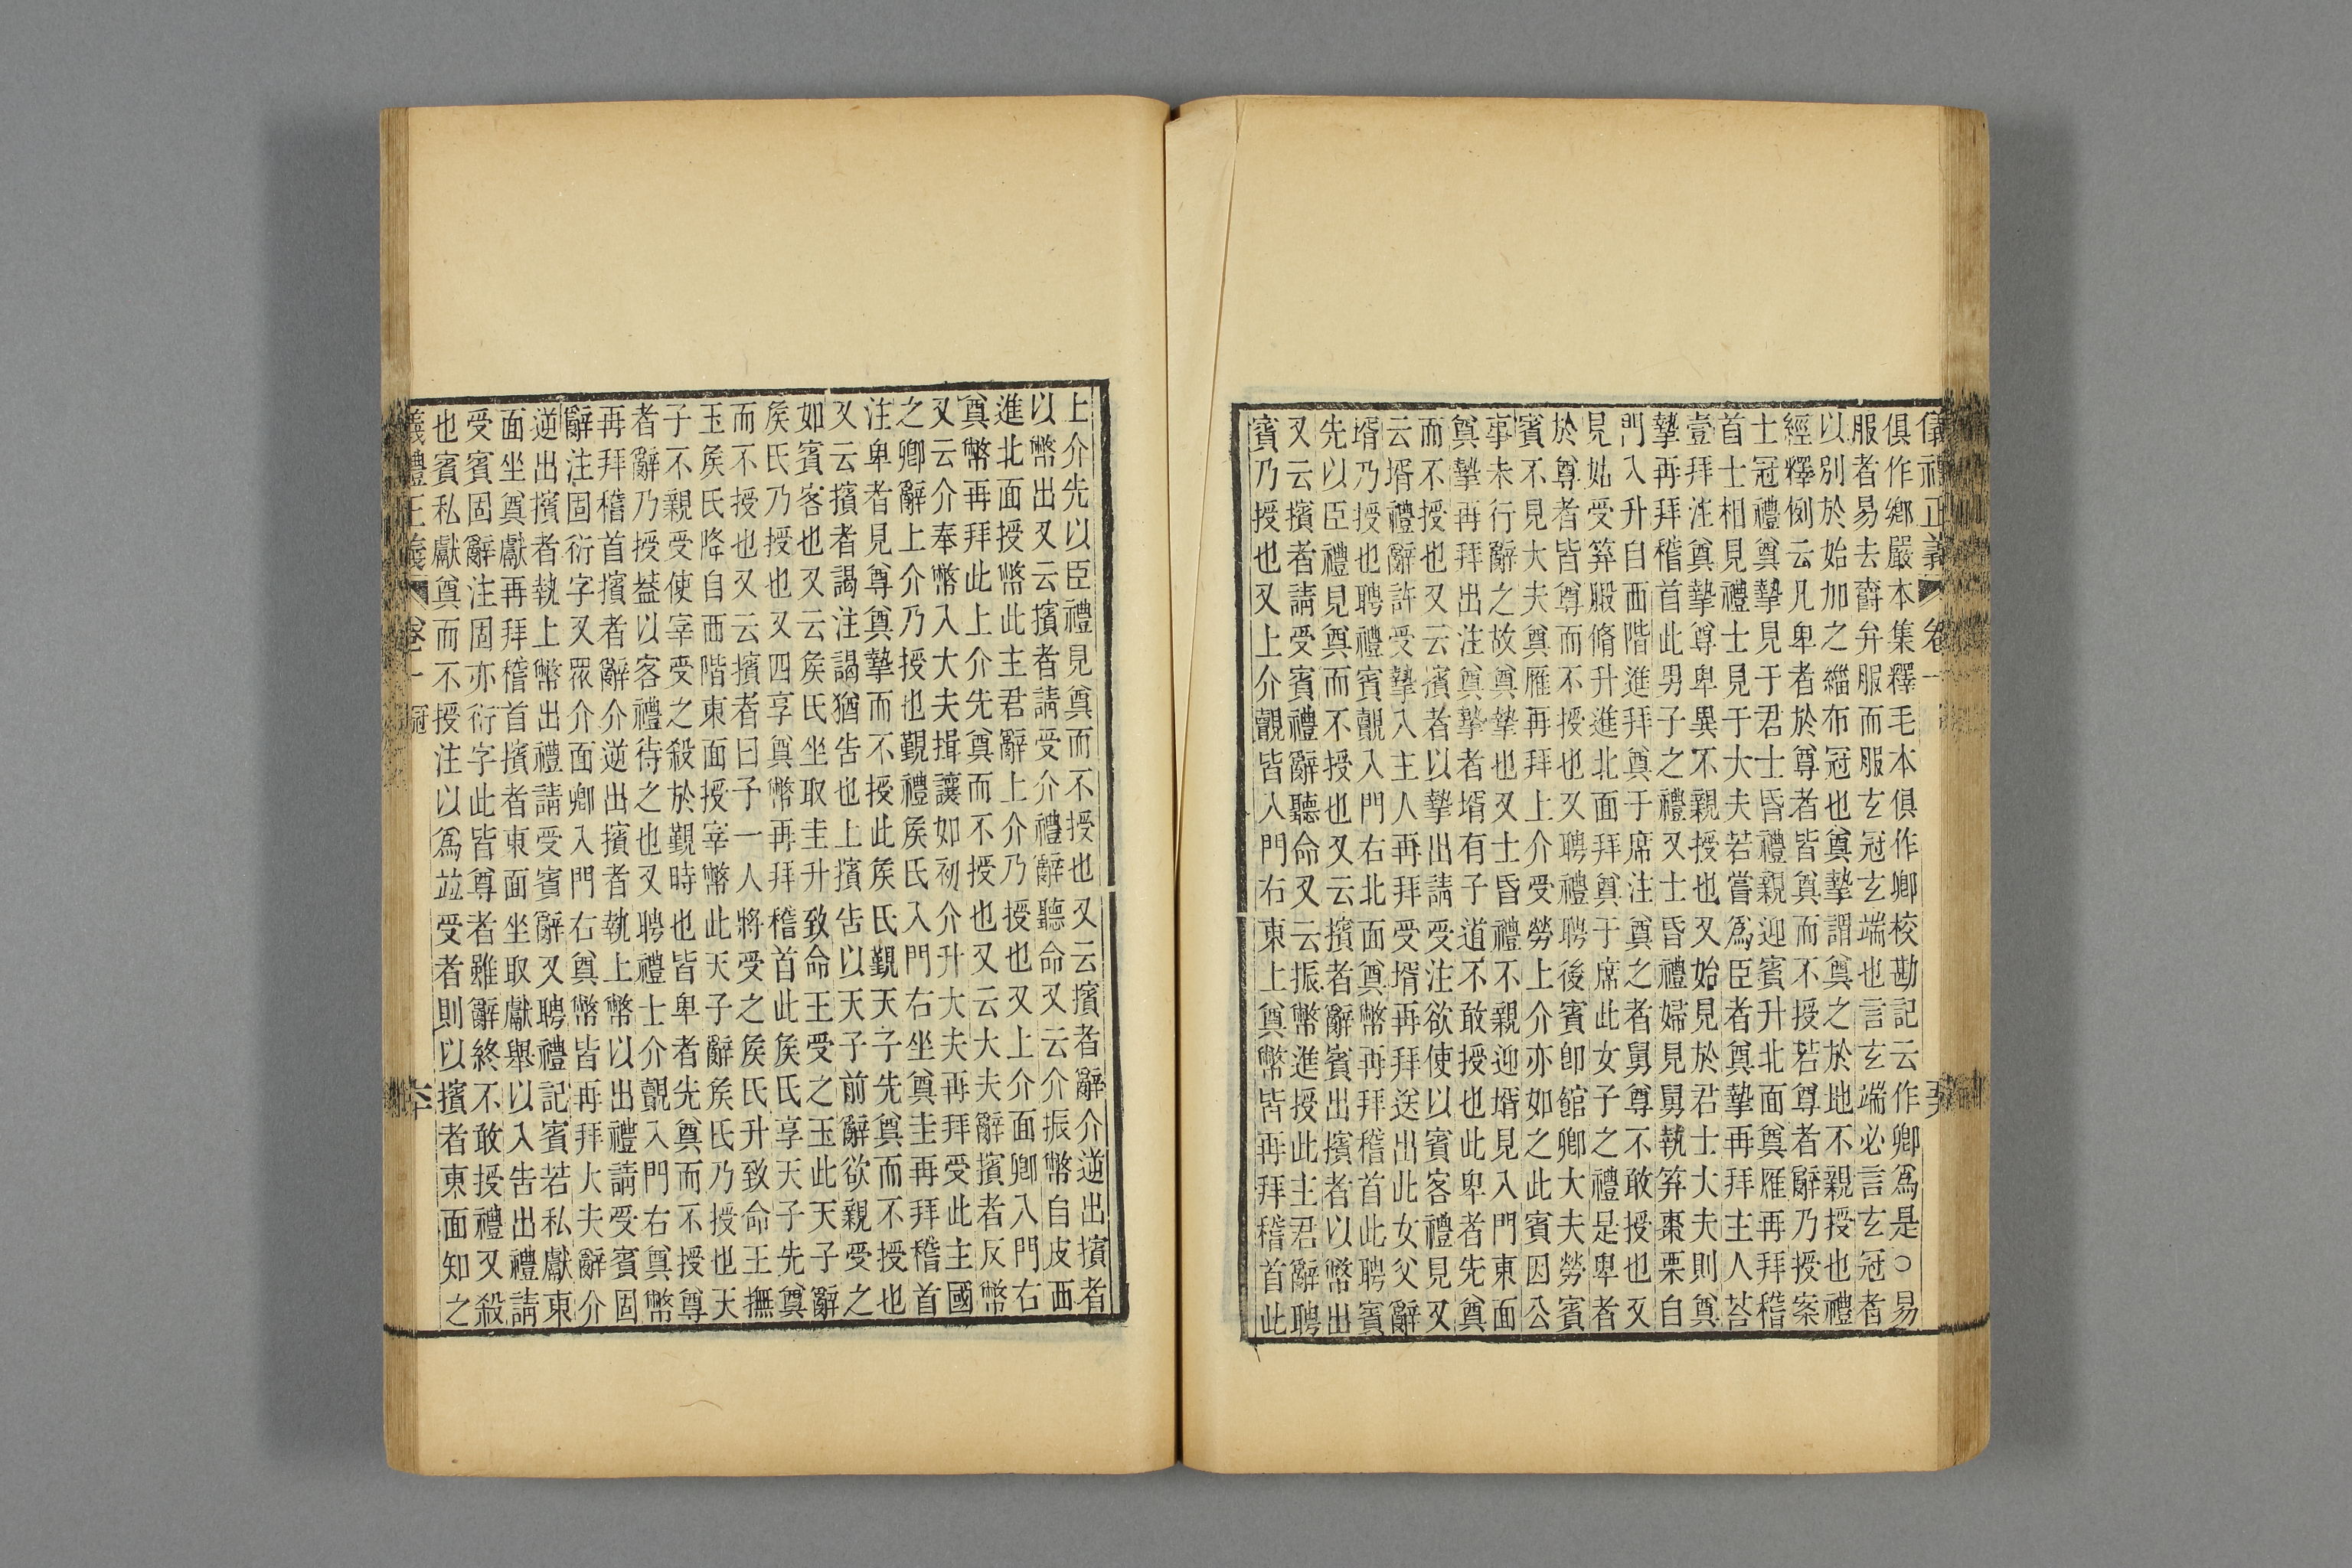 儀禮正義 卷一
俱作鄉嚴本集釋毛本俱作卿校勘記云作卿爲是○易
服者易去爵弁服而服玄冠玄端也言玄端必言玄冠者
以別於始加之緇布冠也奠摯謂奠之於地不親授也禮
經釋例云凡卑者於尊者皆奠而不授若尊者辭乃授案
士冠禮奠摯見于君士昏禮親迎賓升北面奠雁再拜稽
首士相見禮士見于大夫若嘗爲臣者奠摯再拜主人荅
壹拜注奠摯尊卑異不親授也又始見於君士大夫則奠
摯再拜稽首此男子之禮又士昏禮婦見舅執笲棗栗自
門入升自西階進拜奠于席注奠之者舅尊不敢授也又
見姑受笲腶脩升進北面拜奠于席此女子之禮是卑者
於尊者皆尊而不授也又聘禮聘後賓卽館卿大夫勞賓
賓不見大夫奠雁再拜上介受勞上介亦如之此賓因公
事未行辭之故奠摯也又士昏禮不親迎壻見入門東面
奠摯再拜出注奠摯者壻有子道不敢授也此卑者先奠
而不授也又云擯者以摯出請受注欲使以賓客禮見又
云壻禮辭許受摯入主人再拜受壻再拜送出此女父辭
壻乃授也聘禮賓覿入門右北面奠幣再拜稽首此聘賓
先以臣禮見奠而不授也又云擯者辭賓出擯者以幣出
又云擯者請受賓禮辭聽命又云振幣進授此主君辭聘
賓乃授也又上介覿皆入門右東上奠幣皆再拜稽首此
上介先以臣禮見奠而不授也又云擯者辭介逆出擯者
以幣出又云擯者請受介禮辭聽命又云介振幣自皮西
進北面授幣此主君辭上介乃授也又上介面卿入門右
奠幣再拜此上介先奠而不授也又云大夫辭擯者反幣
又云介奉幣入大夫揖讓如初介升大夫再拜受此主國
之卿辭上介乃授也覲禮矦氏入門右坐奠圭再拜稽首
注卑者見尊奠摯而不授此矦氏覲天子先奠而不授也
又云擯者謁注謁猶告也上擯告以天子前辭欲親受之
如賓客也又云矦氏坐取圭升致命王受之玉此天子辭
矦氏乃授也又四享奠幣再拜稽首此矦氏享天子先奠
而不授也又云擯者曰予一人將受之矦氏升致命王撫
玉矦氏降自西階東面授宰幣此天子辭矦氏乃授也天
子不親受使宰受之殺於覲時也皆卑者先奠而不授尊
者辭乃授葢以客禮待之也又聘禮士介覿入門右奠幣
再拜稽首擯者辭介逆出擯者執上幣以出禮請受賓固
辭注固衍字又眾介面卿入門右奠幣皆再拜大夫辭介
逆出擯者執上幣出禮請受賓辭又聘禮記賓若私獻東
面坐奠獻再拜稽首擯者東面坐取獻舉以入告出禮請
受賓固辭注固亦衍字此皆尊者雖辭終不敢授禮又殺
也賓私獻奠而不授注以爲竝受者則以擯者東面知之